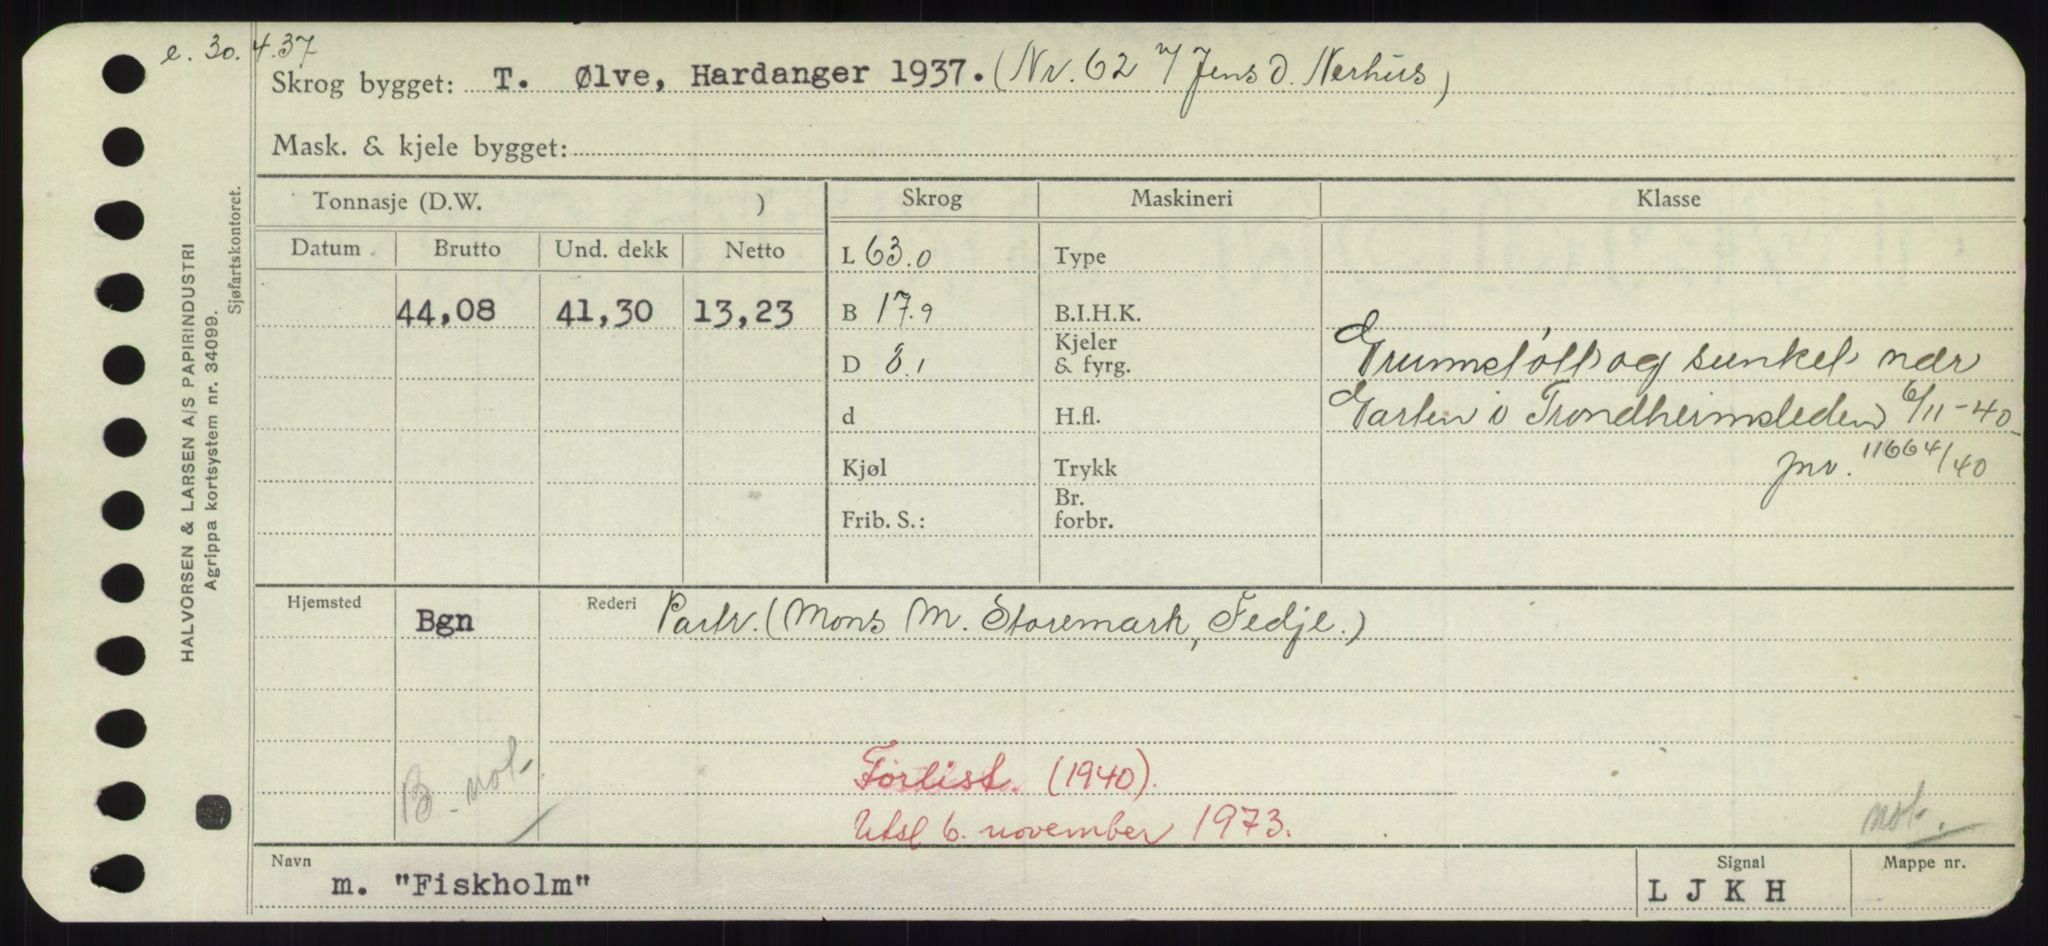 e. 30.4.37
Skrog bygget: T. Ølve, Hardanger 1937. (Nr. 62 Jens D. Nerhus)
Mask. & kjele bygget:
Tonnasje (D.W. )
Skrog
Maskineri
Klasse
Datum Brutto Und. dekk Netto
44,08 41,30 13,23
L 63.0
B 17.9
D 8.1
d
Kjøl
Frib. S.:
Type
B.I.H.K.
Kjeler
& fyrg.
H.fl.
Trykk
Br.
forbr.
Grunnstøtt og sunket nær
Garten i Trondheimsleden 6/11-40.
jnv. 11664/40
Hjemsted Bgn Rederi Partr. (Mons M. Storemark, Fedje.)
B. not.
Forlist. (1940).
Utsl 6. november 1973.
not.
Navn m. "Fiskholm"
Signal
L J K H
Mappe nr.
HALVORSEN & LARSEN A/S PAPIRINDUSTRI
Agrippa kortsystem nr. 34099.
Sjøfartskontoret.